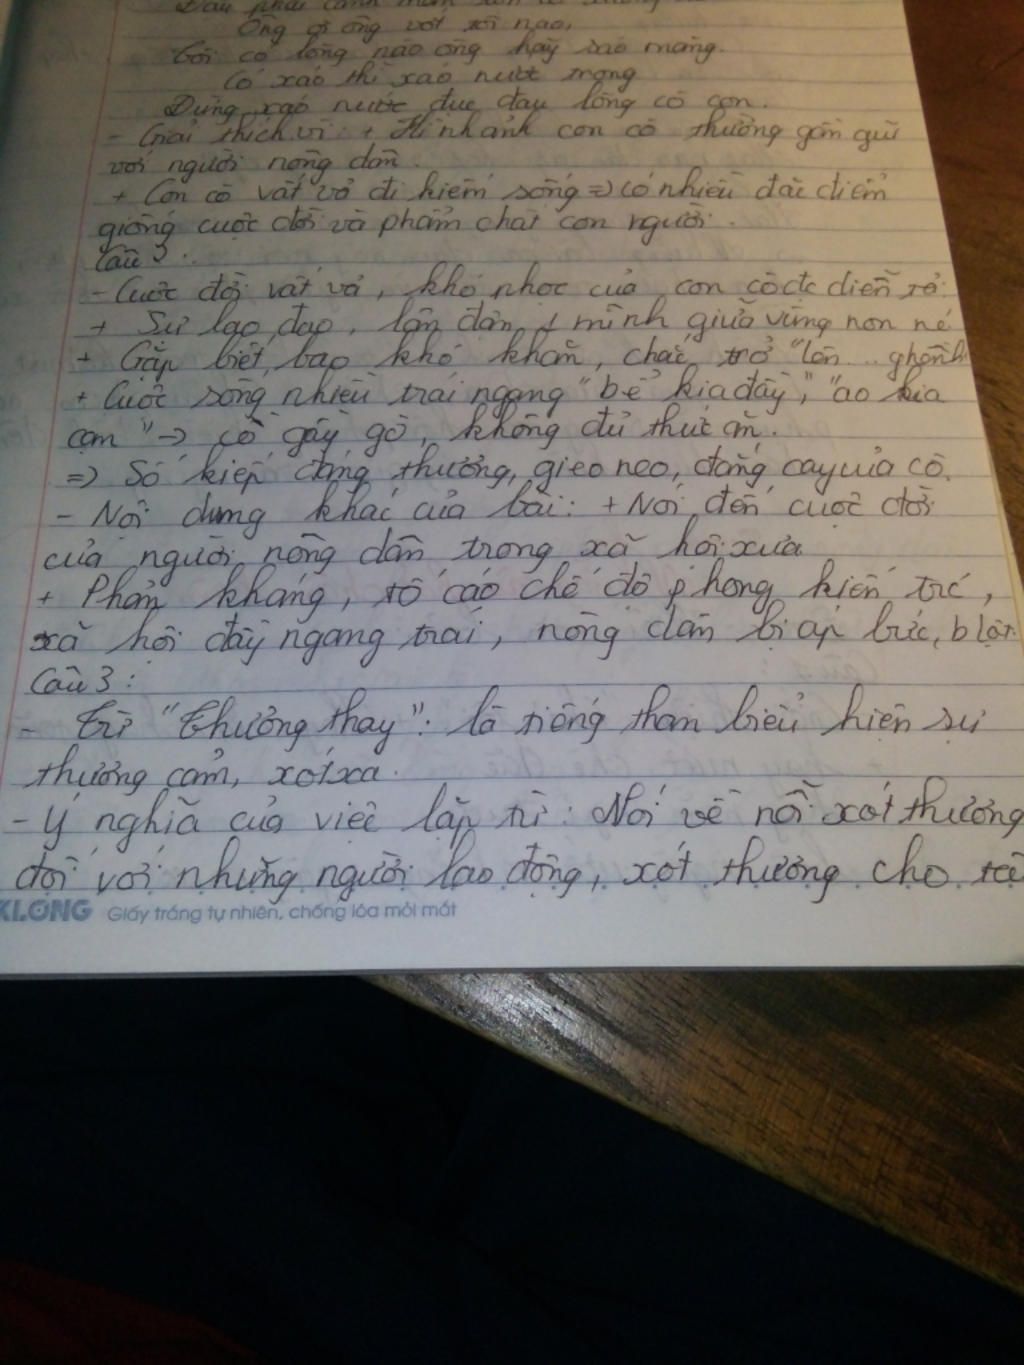 Ông ơi ông vớt tôi nao,
Tôi có lòng nào ông hãy sáo măng.
Có xáo thì xáo nước trong
Đừng xáo nước đục đau lòng cò con.
- Giải thích vì: + Hình ảnh con cò thường gần gũi
với người nông dân.
+ Con cò vất vả đi kiếm sống => có nhiều đặc điểm
giống cuộc đời và phẩm chất con người.
Câu 2:
- Cuộc đời vất vả, khó nhọc của con cò đc diễn tả:
+ Sự lao đao, lận đận, 1 mình giữa vùng non nc
+ Gặp biết bao khó khăn, chắc trở "lên .. ghềnh
+ Cuộc sống nhiều trái ngang "bể kia đầy", "ao kia
cạn" -> cò gầy gò, không đủ thức ăn.
=> Số kiếp đáng thương, gieo neo, đắng cay của cò.
- Nội dung khác của bài: + Nói đến cuộc đời
của người nông dân trong xã hội xưa
+ Phản kháng, tố cáo chế độ phong kiến trc,
xã hội đầy ngang trái, nông dân bị áp bức, b lột.
Câu 3:
- Từ "Thương thay": là tiếng than biểu hiện sự
thương cảm, xót xa.
- Ý nghĩa của việc lặp từ: Nói về nỗi xót thương
đối với những người lao động, xót thương cho
KLONG Giấy trắng tự nhiên, chống lóa mỏi mắt